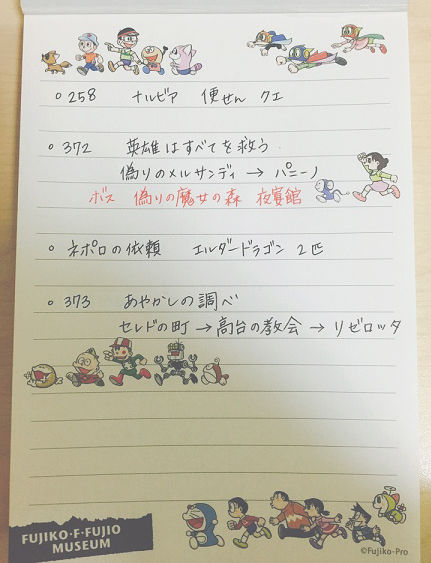 ○258 ナルビア 便せん クエ
○372 英雄はすべてを救う
偽りのメルサンディ→パニーノ
ボス 偽りの魔女の森 夜宴館
○ネポロの依頼 エルダードラゴン 2匹
○373 あやかしの調べ
セレドの町→高台の教会→リゼロッタ
FUJIKO・F・FUJIO
MUSEUM
©Fujiko-Pro